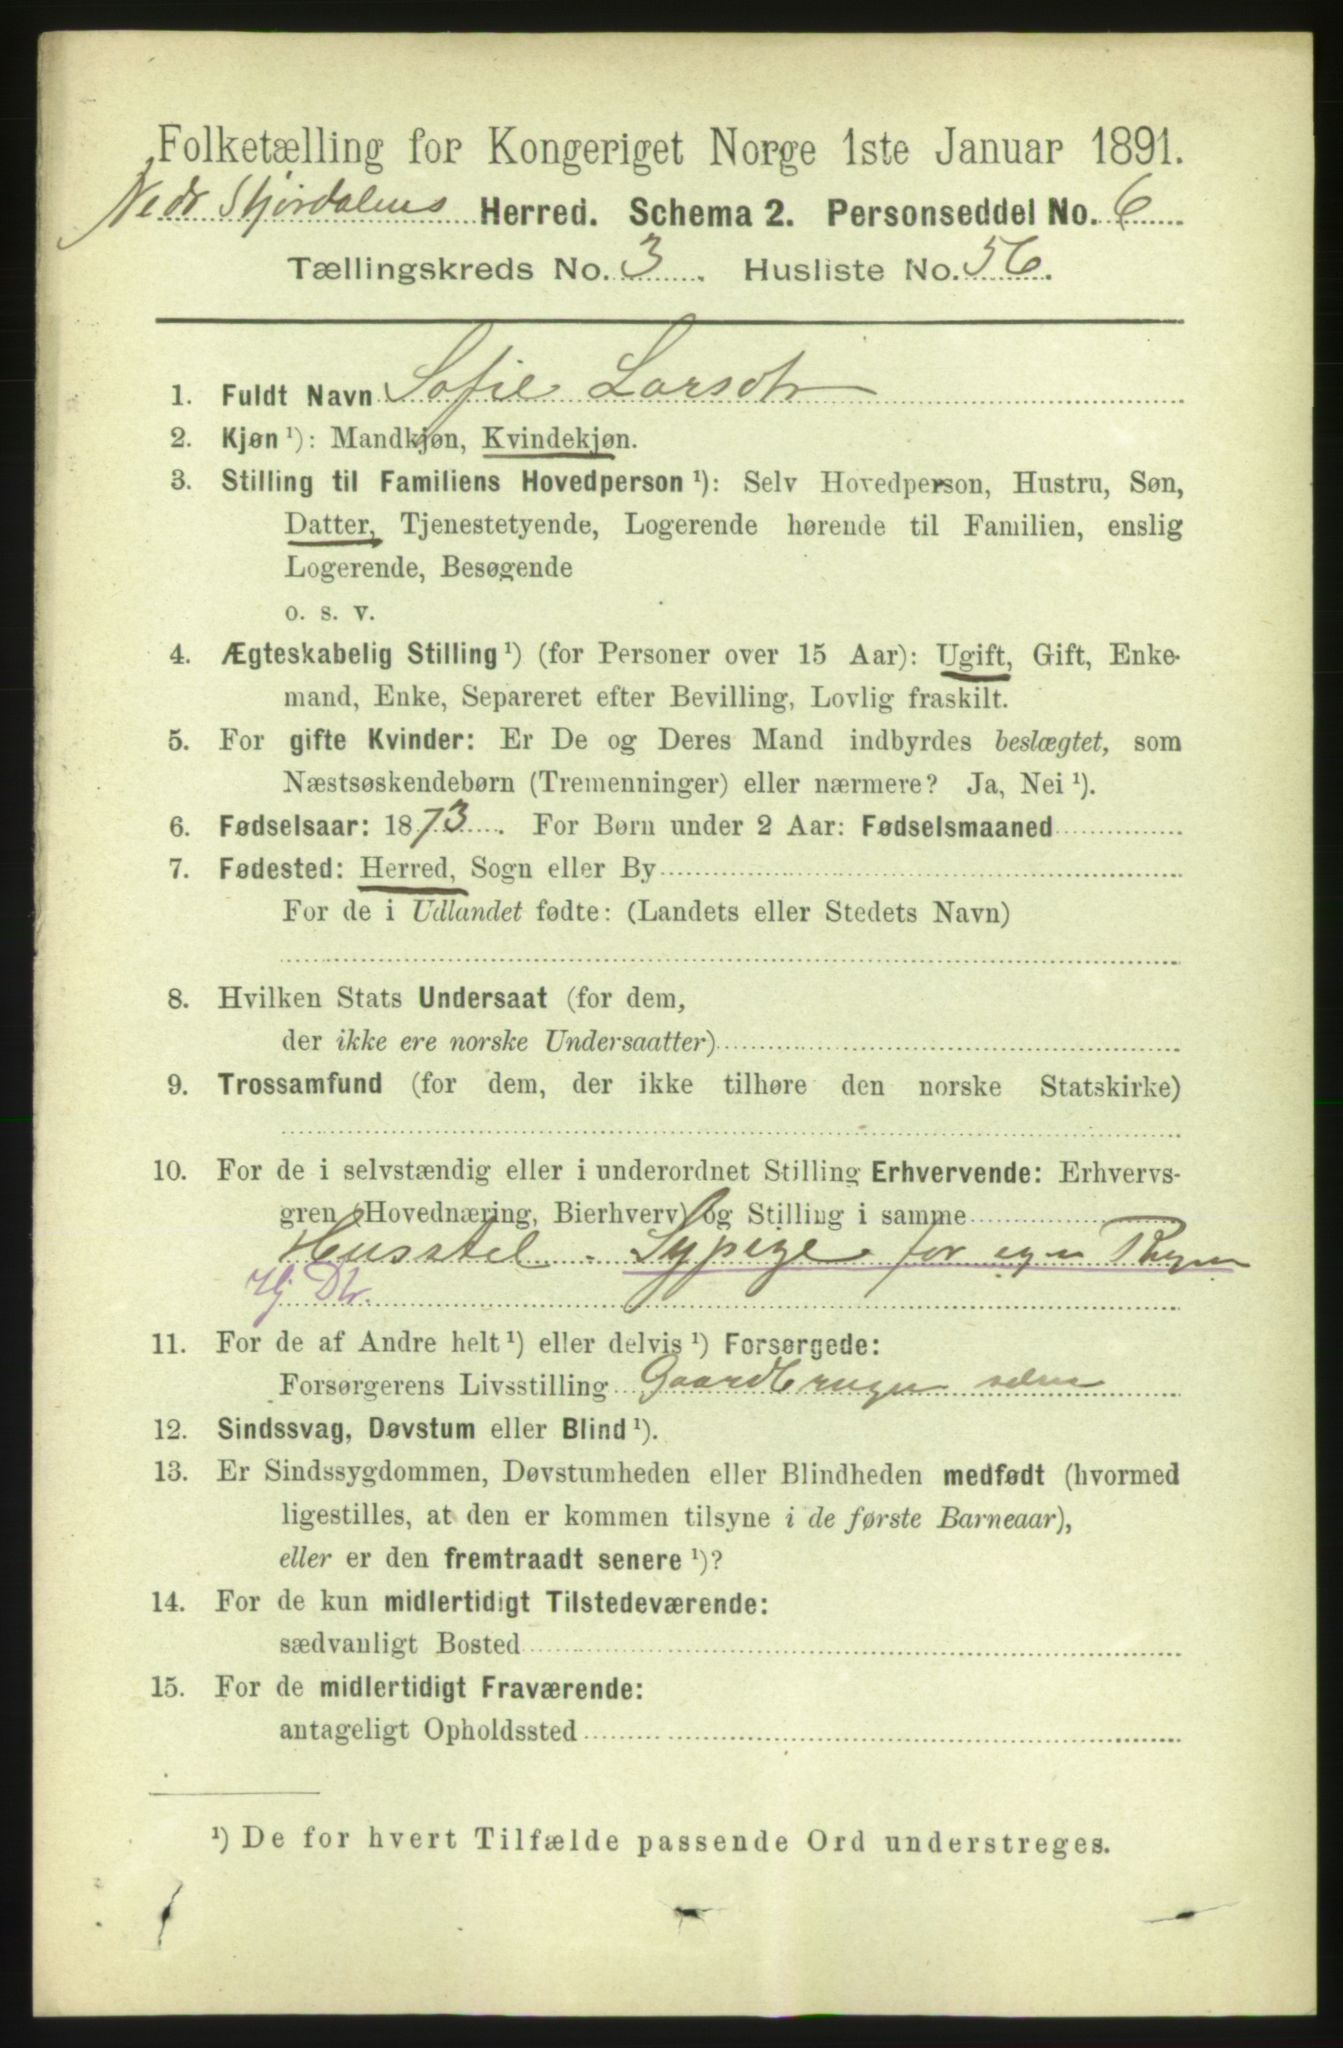 Folketælling for Kongeriget Norge 1ste Januar 1891.
Nedr Stjørdalens Herred. Schema 2. Personseddel No. 6
Tællingskreds No. 3. Husliste No. 56.
1. Fuldt Navn Sofie Larsdtr
2. Kjøn ¹): Mandkjøn, Kvindekjøn.
3. Stilling til Familiens Hovedperson ¹): Selv Hovedperson, Hustru, Søn,
Datter, Tjenestetyende, Logerende hørende til Familien, enslig
Logerende, Besøgende
o. s. v.
4. Ægteskabelig Stilling ¹) (for Personer over 15 Aar): Ugift, Gift, Enke-
mand, Enke, Separeret efter Bevilling, Lovlig fraskilt.
5. For gifte Kvinder: Er De og Deres Mand indbyrdes beslægtet, som
Næstsøskendebørn (Tremenninger) eller nærmere? Ja, Nei ¹).
6. Fødselsaar: 1873. For Børn under 2 Aar: Fødselsmaaned
7. Fødested: Herred, Sogn eller By
For de i Udlandet fødte: (Landets eller Stedets Navn)
8. Hvilken Stats Undersaat (for dem,
der ikke ere norske Undersaatter)
9. Trossamfund (for dem, der ikke tilhøre den norske Statskirke)
10. For de i selvstændig eller i underordnet Stilling Erhvervende: Erhvervs-
gren (Hovednæring, Bierhverv) og Stilling i samme
Husstel. Sypige for egen Regn
Hj Dtr.
11. For de af Andre helt ¹) eller delvis ¹) Forsørgede:
Forsørgerens Livsstilling Gaardbruger
12. Sindssvag, Døvstum eller Blind ¹).
13. Er Sindssygdommen, Døvstumheden eller Blindheden medfødt (hvormed
ligestilles, at den er kommen tilsyne i de første Barneaar),
eller er den fremtraadt senere ¹)?
14. For de kun midlertidigt Tilstedeværende:
sædvanligt Bosted
15. For de midlertidigt Fraværende:
antageligt Opholdssted
¹) De for hvert Tilfælde passende Ord understreges.